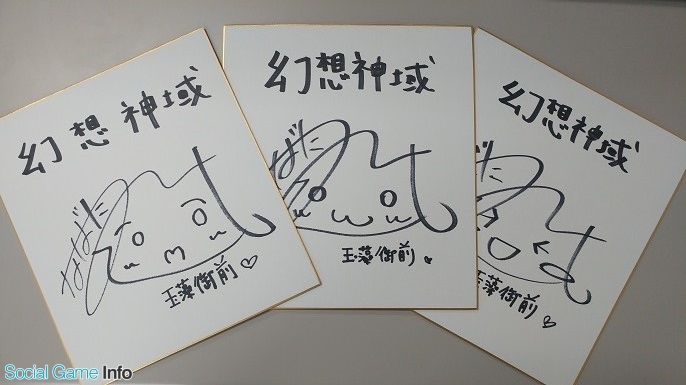 幻想神域
玉藻御前♡
幻想神域
玉藻御前
幻想神域
玉藻御前
Social Game Info